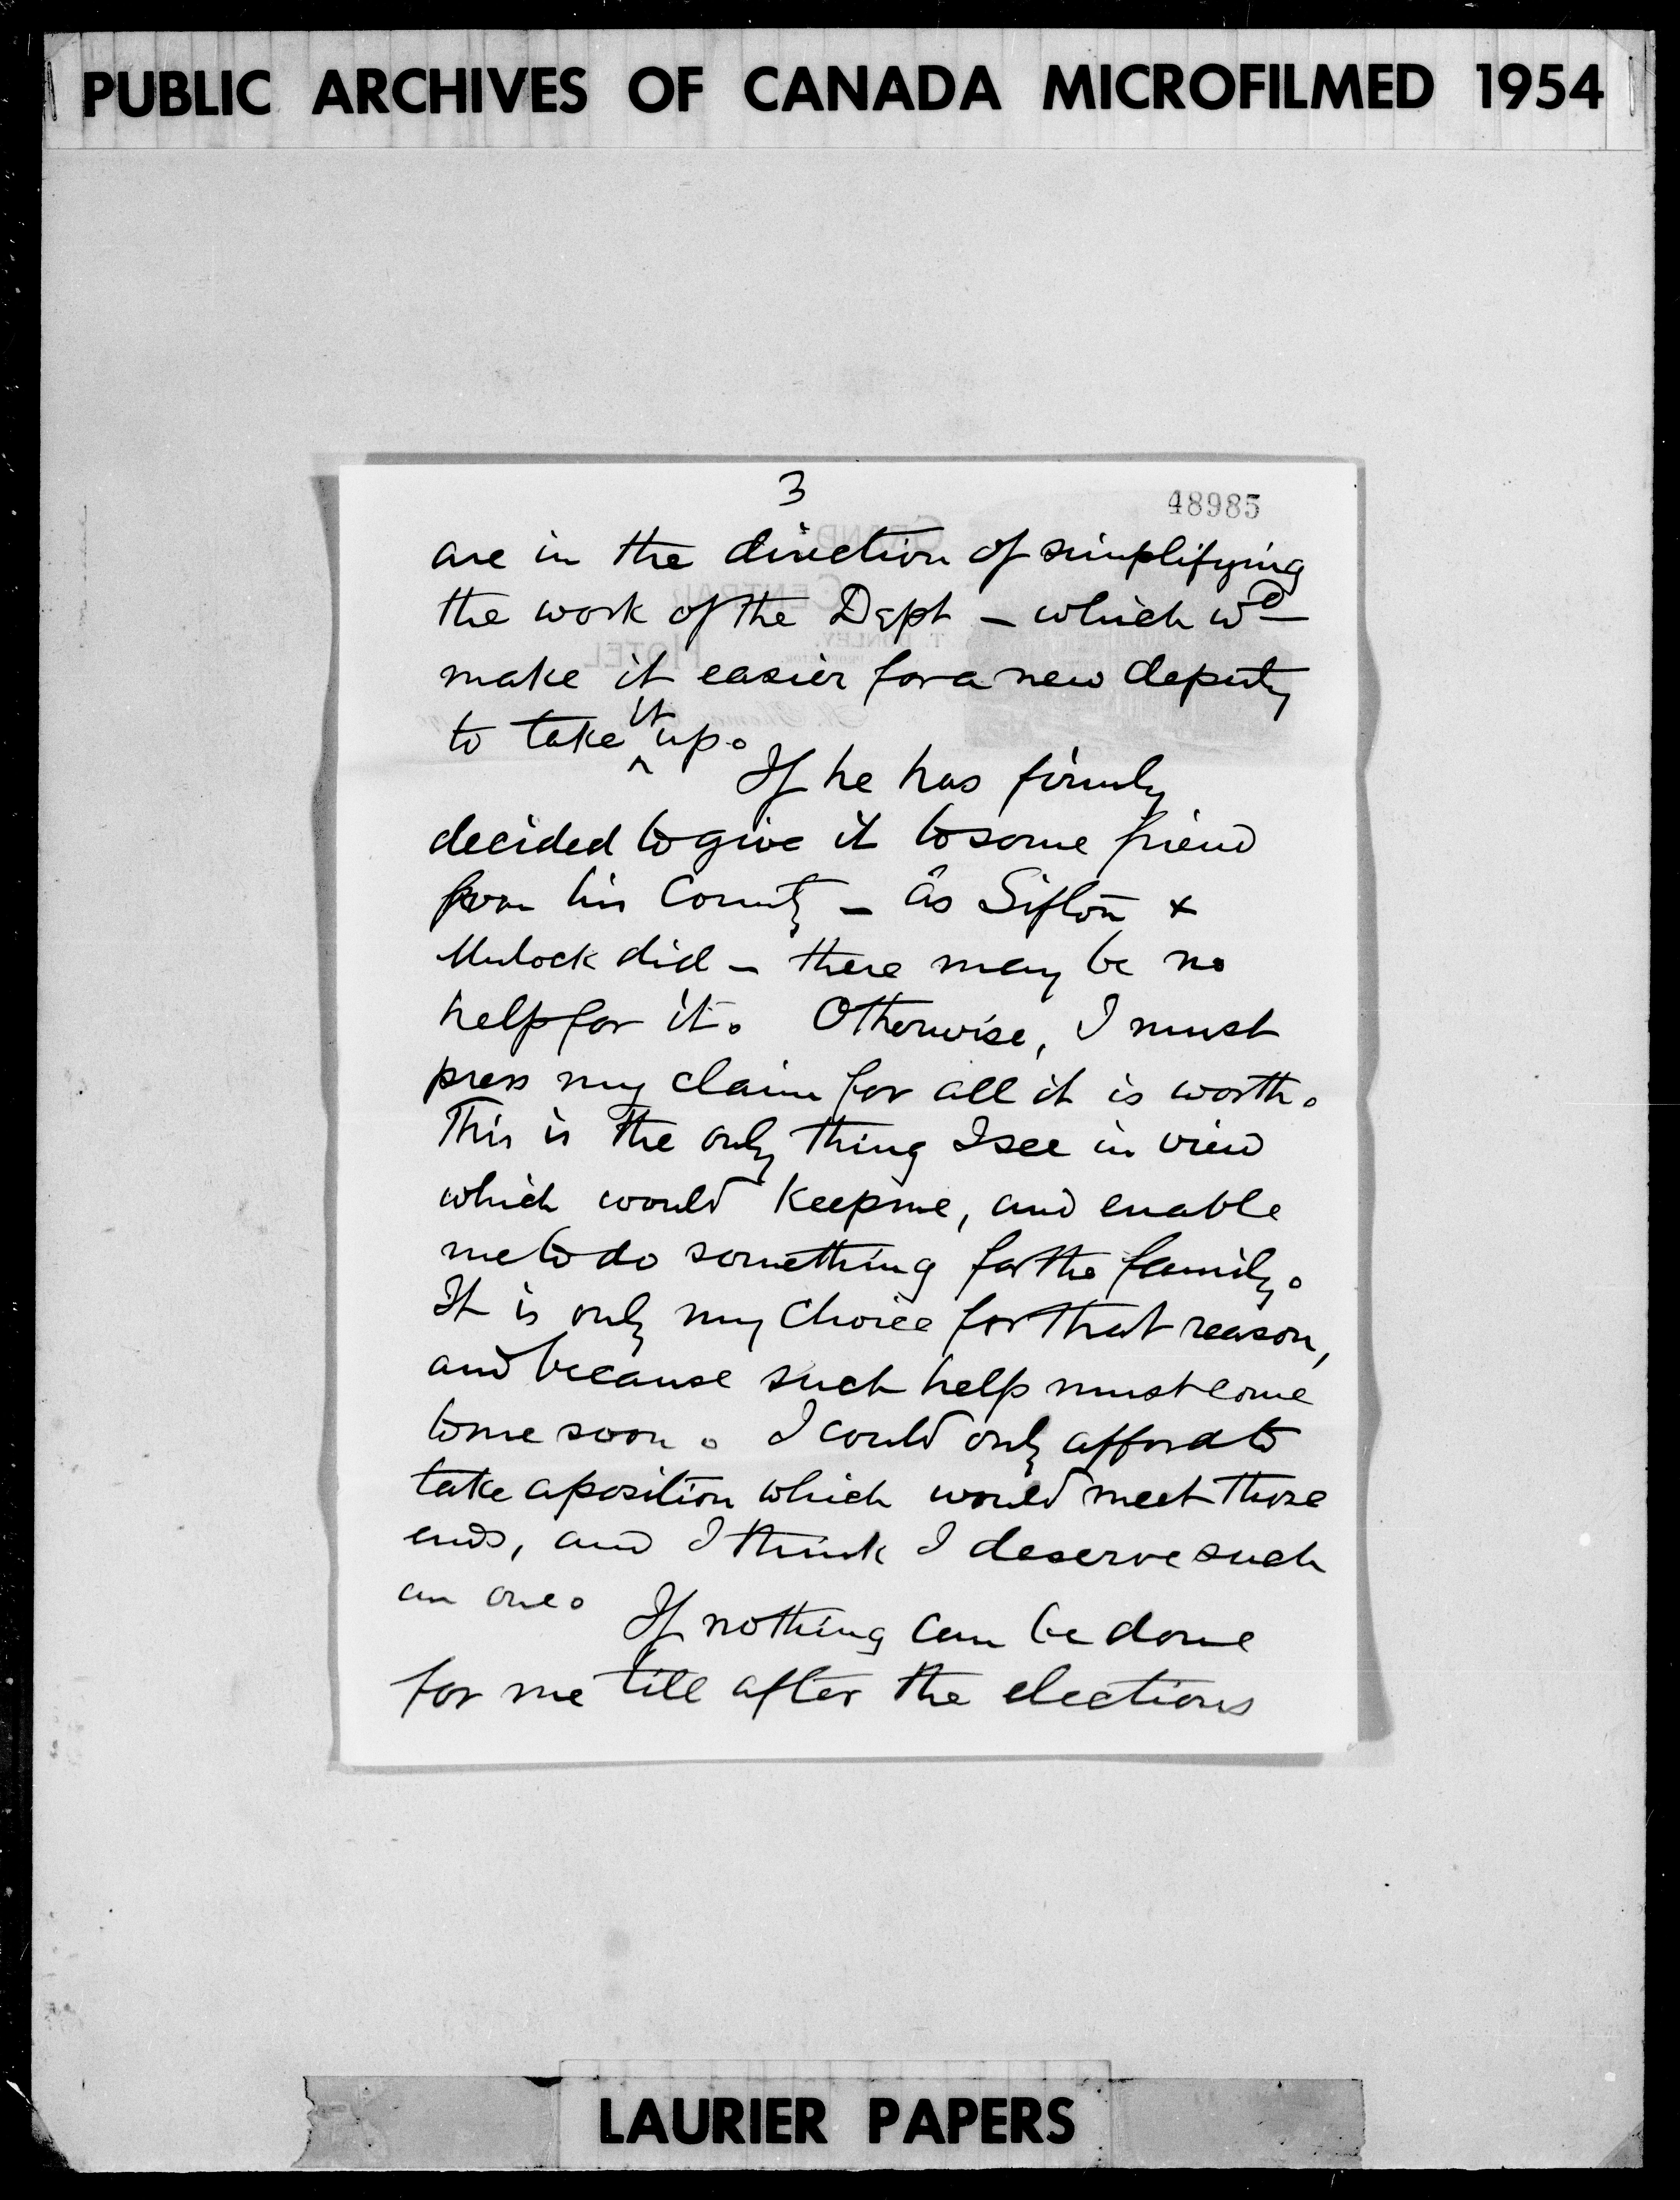 PUBLIC ARCHIVES OF CANADA MICROFILMED 1954
3
48985
are in the direction of simplifying
the work of the Dept – which wd
make it easier for a new deputy
to take it up.
If he has firmly
decided to give it to some friend
from his County – as Sifton &
Mulock did – there may be no
help for it. Otherwise, I must
press my claim for all it is worth.
This is the only thing I see in view
which would keep me, and enable
me to do something for the family.
It is only my choice for that reason,
and because such help must come
to me soon. I could only afford to
take a position which would meet those
ends, and I think I deserve such
an one.
If nothing can be done
for me till after the elections
LAURIER PAPERS